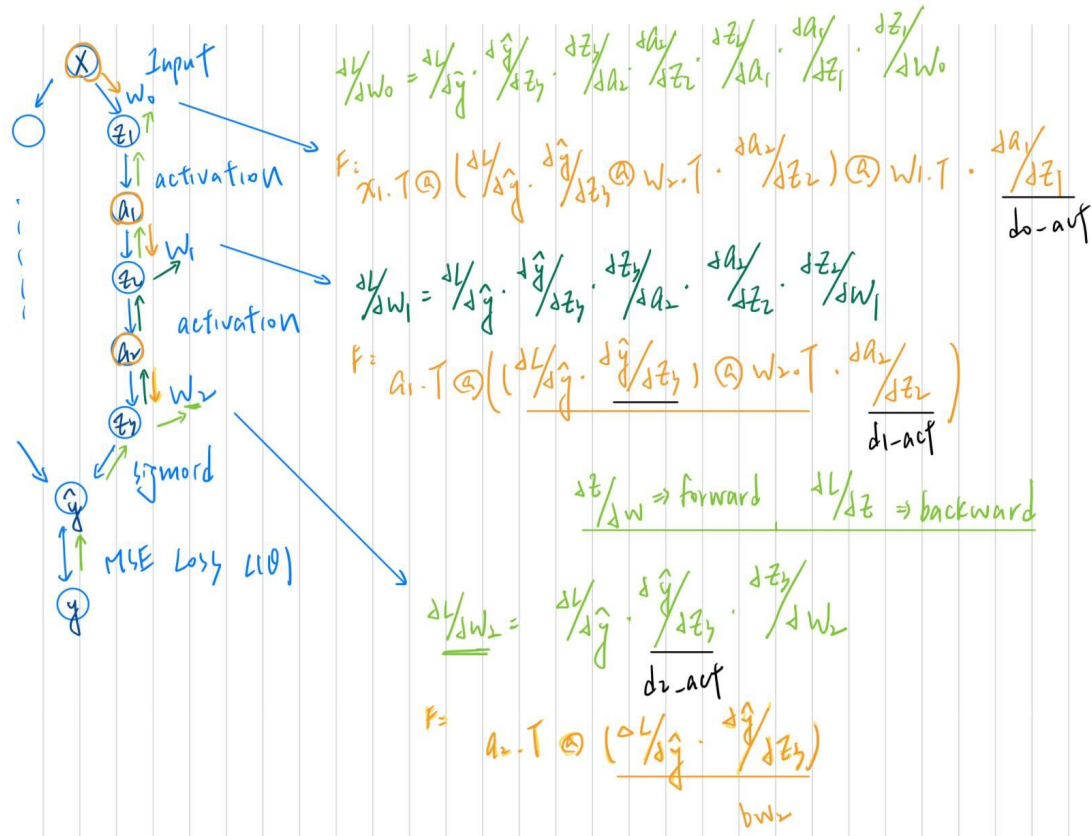 X Input
w₀
z₁
activation
a₁
w₁
z₂
activation
a₂
w₂
z₃
sigmord
ŷ
MSE Loss L(θ)
y
∂L/∂w₀ = ∂L/∂ŷ · ∂ŷ/∂z₃ · ∂z₃/∂a₂ · ∂a₂/∂z₂ · ∂z₂/∂a₁ · ∂a₁/∂z₁ · ∂z₁/∂w₀
F: x₁.T @ (∂L/∂ŷ · ∂ŷ/∂z₃ @ w₂.T · ∂a₂/∂z₂) @ w₁.T · ∂a₁/∂z₁
d₀-act
∂L/∂w₁ = ∂L/∂ŷ · ∂ŷ/∂z₃ · ∂z₃/∂a₂ · ∂a₂/∂z₂ · ∂z₂/∂w₁
F: a₁.T @ ((∂L/∂ŷ · ∂ŷ/∂z₃) @ w₂.T · ∂a₂/∂z₂)
d₁-act
∂z/∂w ⇒ forward , ∂L/∂z ⇒ backward
∂L/∂w₂ = ∂L/∂ŷ · ∂ŷ/∂z₃ · ∂z₃/∂w₂
d₂_act
F= a₂.T @ (∂L/∂ŷ · ∂ŷ/∂z₃)
bw₂